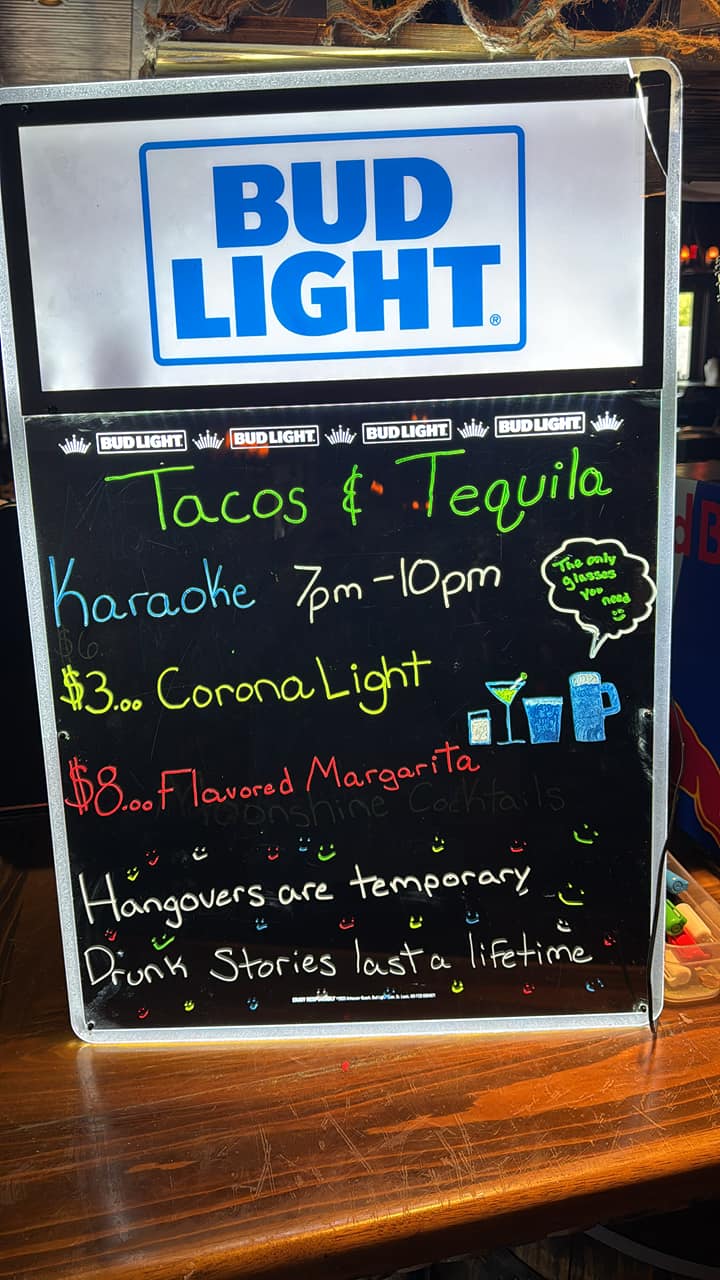 BUD
LIGHT®
BUD LIGHT. BUD LIGHT. BUD LIGHT. BUD LIGHT.
Tacos & Tequila
Karaoke 7pm-10pm
The only
glasses
you
need
$6.
$3.00 Corona Light
$8.00 Flavored Margarita
Moonshine Cocktails
Hangovers are temporary
Drunk Stories last a lifetime